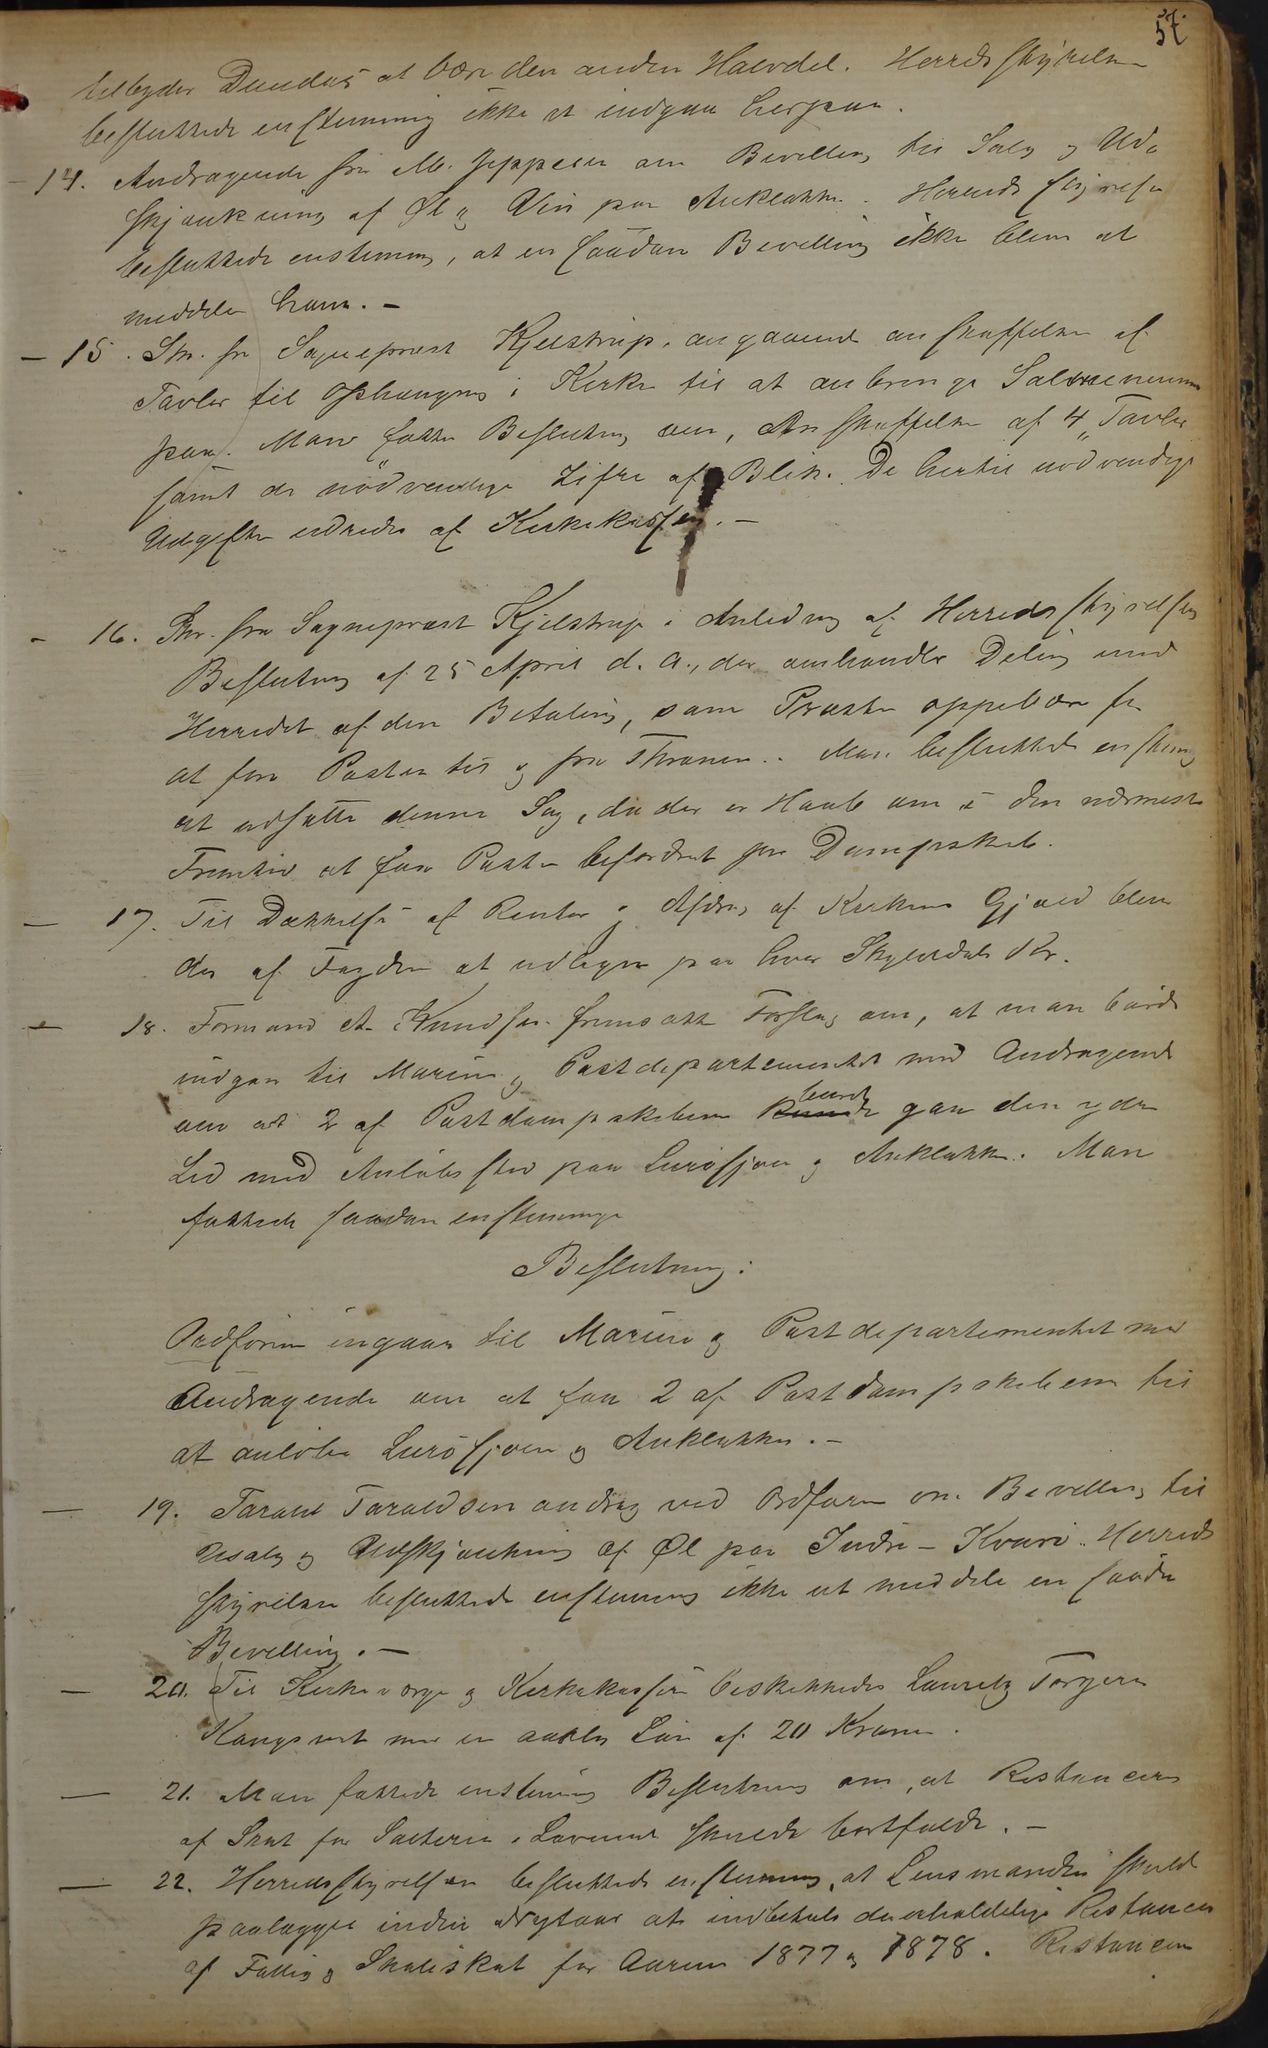 57.
tilbyder Dundas at bære den anden Halvdel. Herredsstyrelsen
besluttede enstemmig ikke at indgaa herpaa.
14. Andragende fra M. Jeppesen om Bevilling til Salg og Ud-
skjænkning af Øl og Vin paa Anklakken. Herredsstyrelsen
besluttede enstemmig, at en saadan Bevilling ikke blev at
meddele ham. –
– 15. Skr. fra Sogneprest Kjelstrup, angaaende anskaffelse af
Tavler til Ophængning i Kirken til at anbringe Salmenumre
paa. Man fattede Beslutning om, Anskaffelse af 4 Tavler
samt de nødvendige Zifre af Blik. De hertil nødvendige
Udgifter udredes af Kirkekassen. –
– 16. Skr. fra Sogneprest Kjelstrup i Anledning af Herredsstyrelsens
Beslutning af 25 April d. A., der omhandler Deling med
Herredet af den Betaling, som Præsten oppebærer for
at føre Posten til og fra Thranen. Man besluttede enstemmig
at udsætte denne Sag, da der er Haab om i den nærmeste
Fremtid at faa Posten befordret pr Dampskib.
– 17. Til Dækkelse af Renter og Afdrag af Kirkens Gjæld blev
der af Fogden at udlignes paa hver Skylddaler Kr.
– 18. Formand A. Knudsen fremsatte Forslag om, at man burde
indgaa til Marine og Postdepartementet med Andragende
om at 2 af Postdampskibene burde gaa den ydre
Led med Anløbssted paa Lurøsjøen og Anklakken. Man
fattede saadan enstemmige
Beslutning:
Ordføreren ingaar til Marine og Postdepartementet med
Andragende om at faa 2 af Postdampskibene til
at anløbe Lurøsjøen og Anklakken. –
– 19. Tarald Taraldsen androg ved Ordføreren om Bevilling til
Udsalg og Udskjænkning af Øl paa Indre-Kvarø. Herreds
styrelsen besluttede enstemmig ikke at meddele en saadan
Bevilling. –
– 20. Til Kirkeværge og Kirkekasserer beskikkedes Lauritz Torgersen
Kongsvik med en aarlig Løn af 20 Kroner.
– 21. Man fattede enstemmig Beslutning om, at Restancerne
af Skat for Salterier i Lovund skulde bortfalde. –
– 22. Herredsstyrelsen besluttede enstemmig, at Lensmanden skulde
paalægges inden Nytaar at indbetale de erholdelige Restancer
af Fattig og Skoleskat for Aarene 1877 og 1878. Restancerne